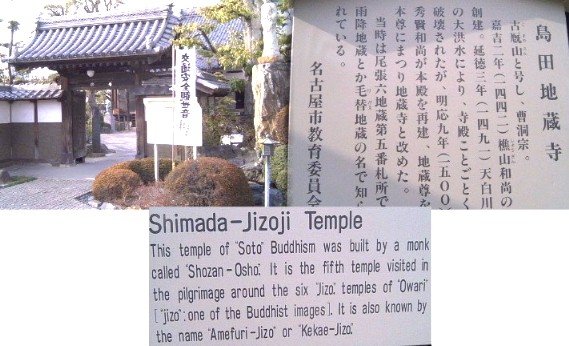 交通安全観世音
島田地蔵寺
古厩山と号し、曹洞宗。
嘉吉二年(一四四二)樵山和尚の
創建。延徳三年(一四九一)天白川
の大洪水により、寺殿ことごとく
破壊されたが、明応九年(一五〇〇
秀賢和尚が本殿を再建、地蔵尊を
本尊にまつり地蔵寺と改めた。
当時は尾張六地蔵第五番札所で
雨降地蔵とか毛替地蔵の名で知
れている。
名古屋市教育委員会
Shimada-Jizoji Temple
This temple of "Soto" Buddhism was built by a monk
called "Shozan-Osho". It is the fifth temple visited in
the pilgrimage around the six "Jizo" temples of "Owari"
["jizo":one of the Buddhist images]. It is also known by
the name "Amefuri-Jizo" or "Kekae-Jizo".